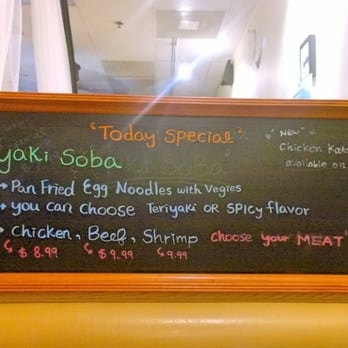 "Today Special"
"NEW"
Chicken Kats
available on
yaki Soba
Pan Fried Egg Noodles with Vegies
you can choose Teriyaki OR SPICY flavor
chicken, Beef, Shrimp choose your MEAT
$8.99 $9.99 9.99